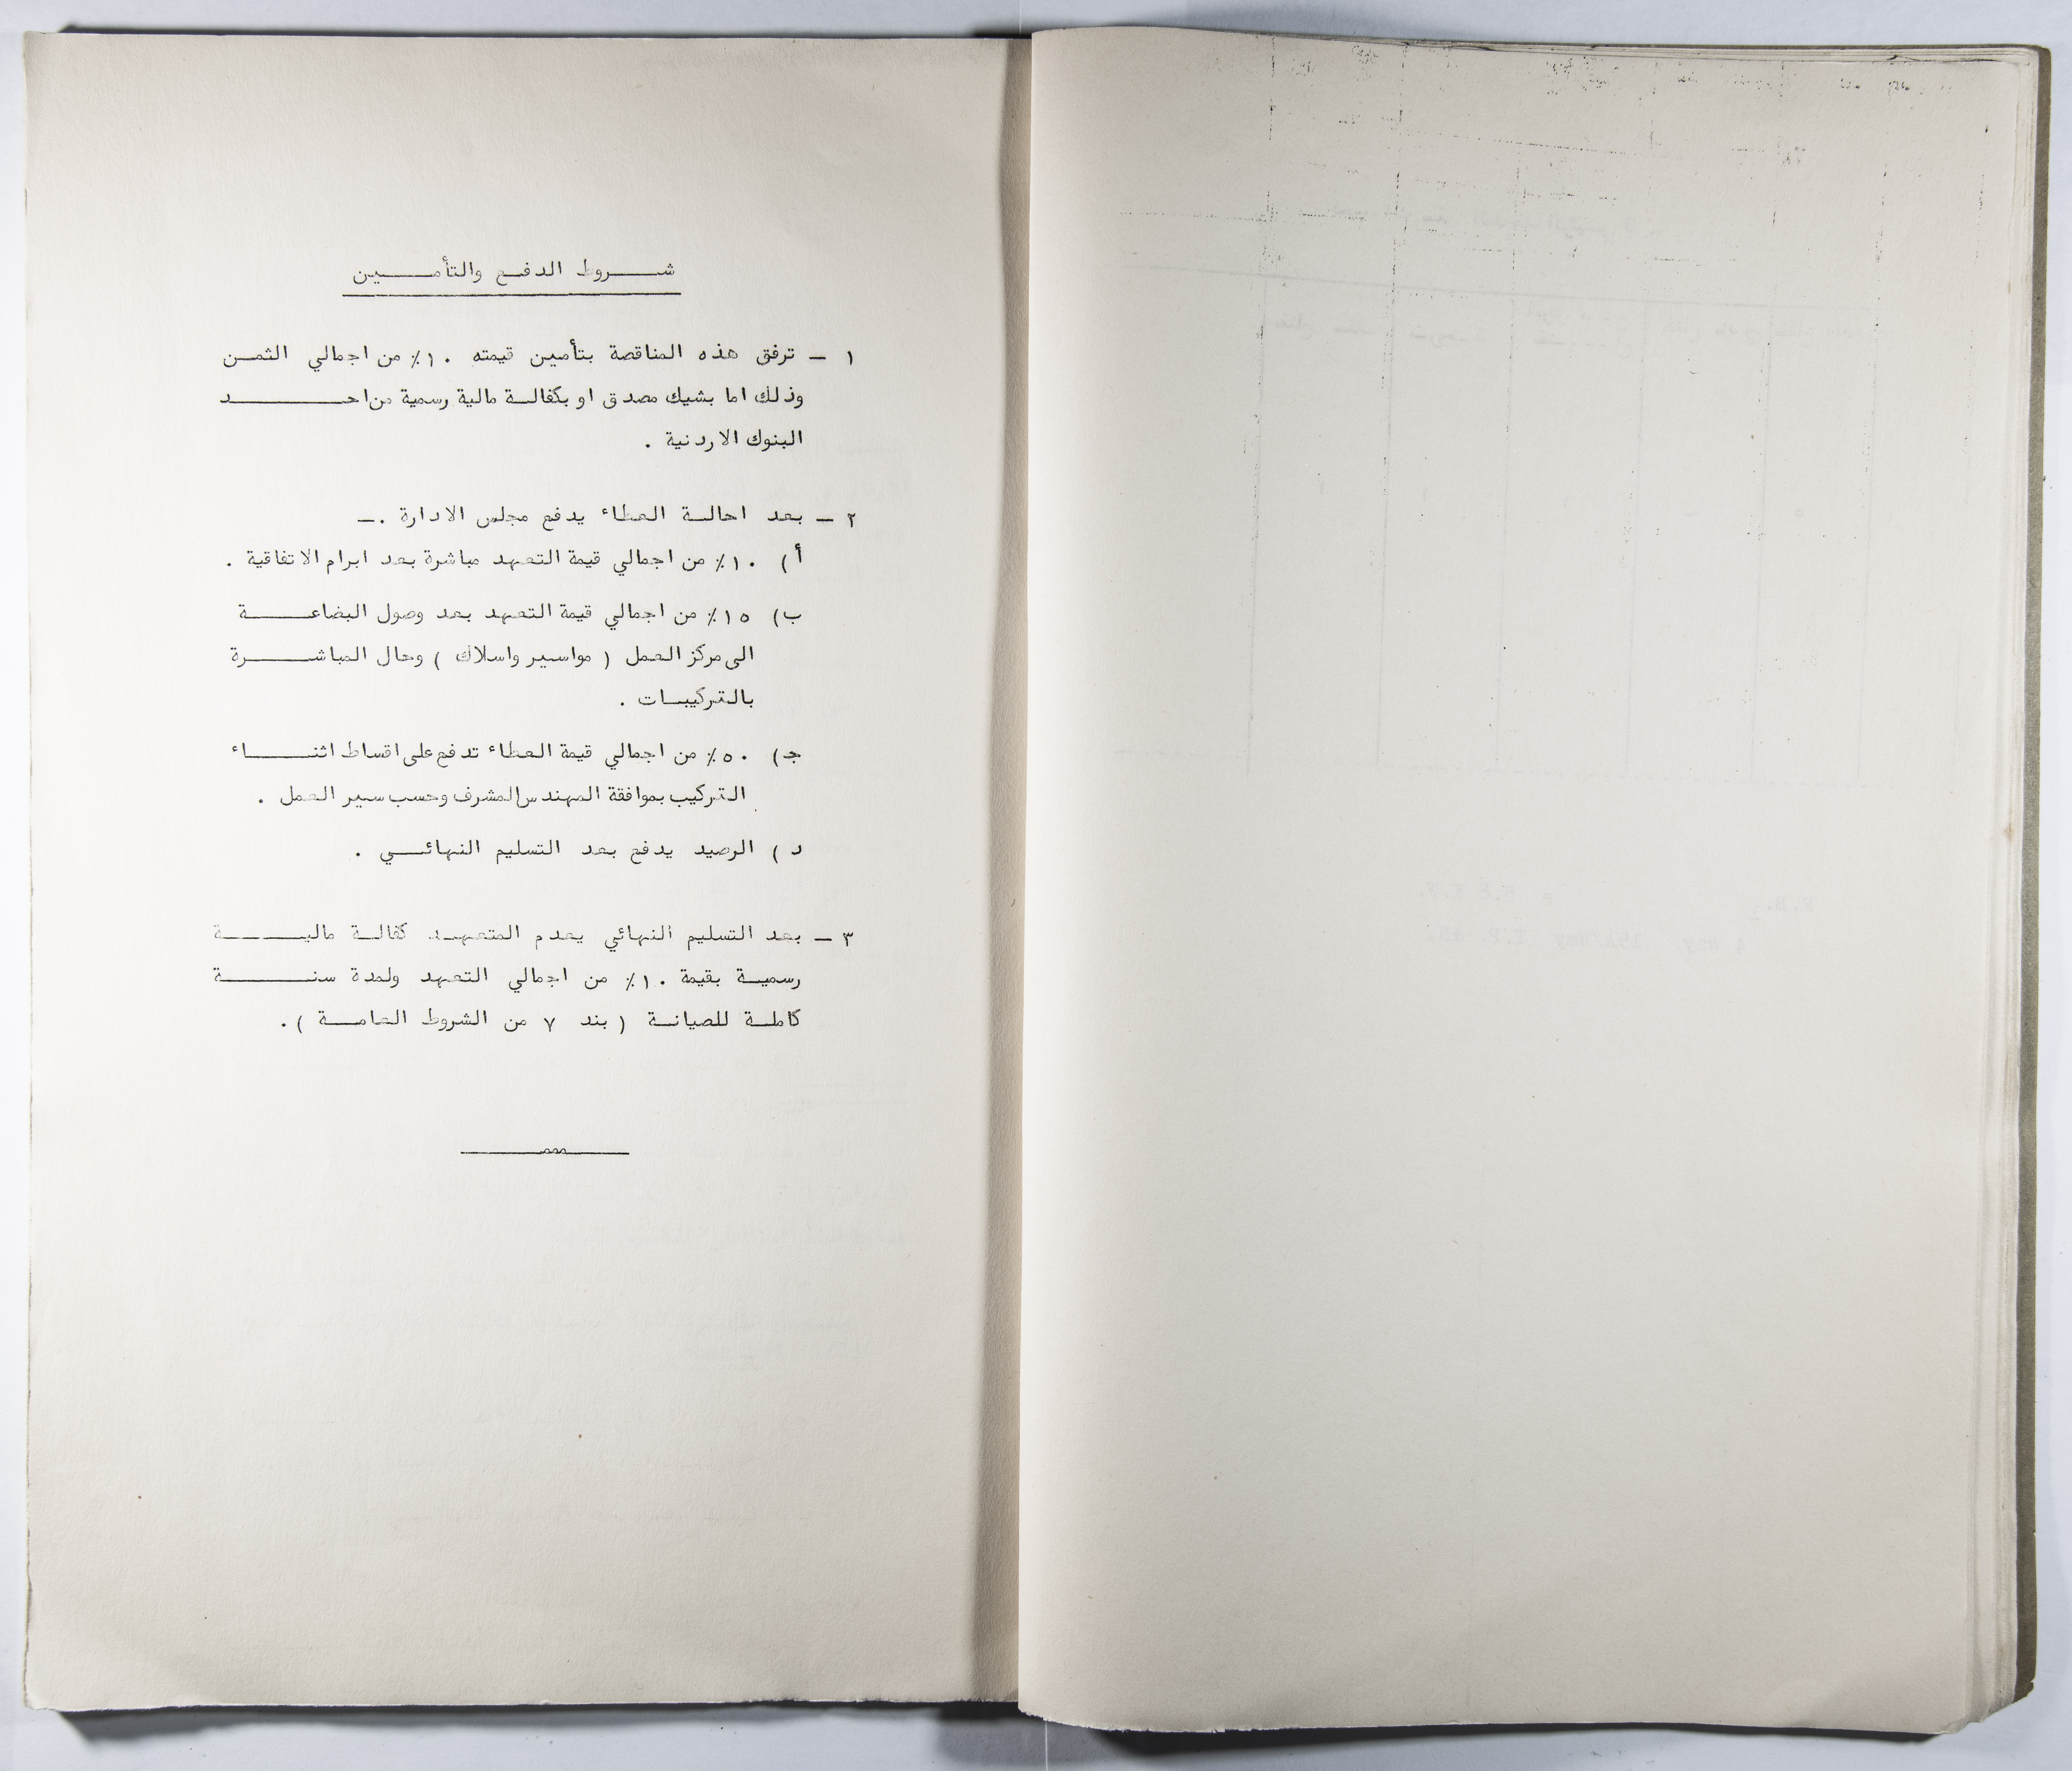 شروط الدفع والتأمين
١ - ترفق هذه المناقصة بتأمين قيمته ١٠٪ من اجمالي الثمن
وذلك اما بشيك مصدق او بكفالة مالية رسمية من احد
البنوك الاردنية .
٢ - بعد احالة العطاء يدفع مجلس الادارة .-
أ ) ١٠٪ من اجمالي قيمة التعهد مباشرة بعد ابرام الاتفاقية .
ب) ١٥٪ من اجمالي قيمة التعهد بعد وصول البضاعة
الى مركز العمل ( مواسير واسلاك ) وحال المباشرة
بالتركيبات .
ج) ٥٠٪ من اجمالي قيمة العطاء تدفع على اقساط اثناء
التركيب بموافقة المهندس المشرف وحسب سير العمل .
د ) الرصيد يدفع بعد التسليم النهائي .
٣ - بعد التسليم النهائي يعدم المتعهد كفالة مالية
رسمية بقيمة ١٠٪ من اجمالي التعهد ولمدة سنة
كاملة للصيانة ( بند ٧ من الشروط العامة ) .